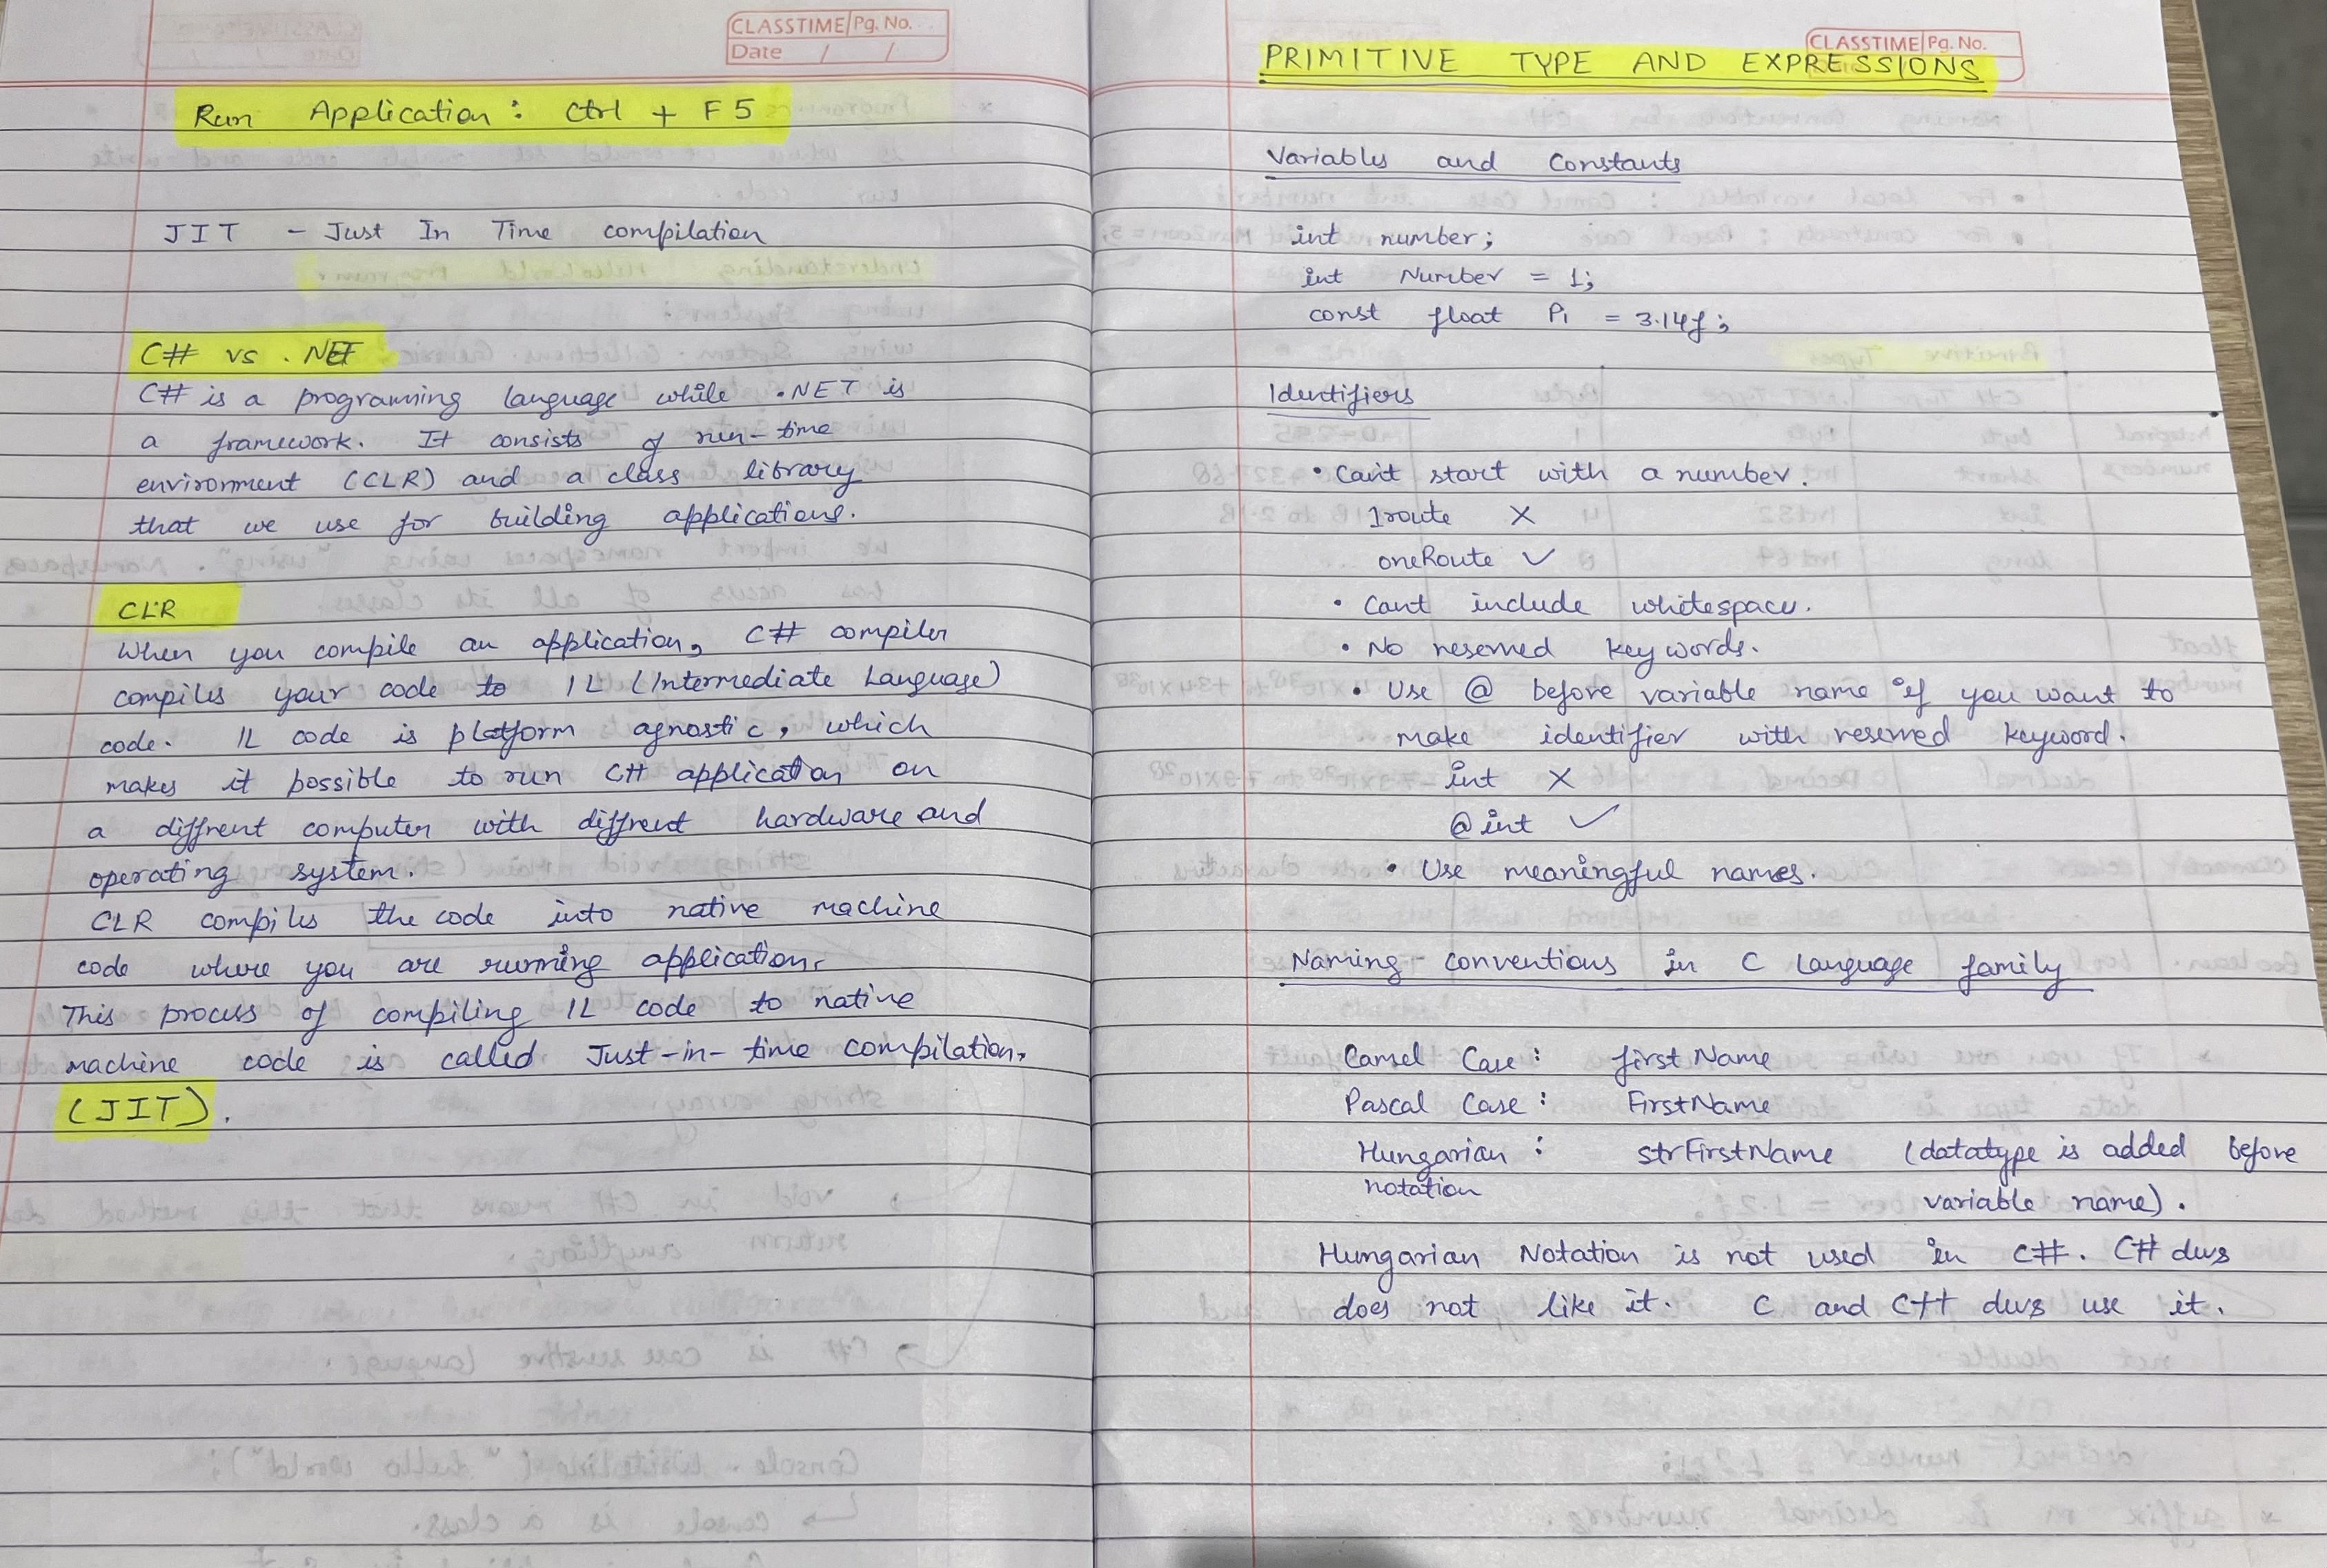 CLASSTIME Pg. No.
Date / /
Run Application : Ctrl + F5
JIT - Just In Time compilation
C# vs .NET
C# is a programing language while .NET is
a framework. It consists of run-time
environment (CLR) and a class library
that we use for building applications.
CLR
When you compile an application, C# compiler
compiles your code to IL (Intermediate Language)
code. IL code is platform agnostic, which
makes it possible to run C# application on
a diffrent computer with diffrent hardware and
operating system.
CLR compiles the code into native machine
code where you are running application.
This process of compiling IL code to native
machine code is called Just-in-time compilation.
(JIT).
CLASSTIME Pg. No.
PRIMITIVE TYPE AND EXPRESSIONS
Variables and Constants
int number;
int Number = 1;
const float Pi = 3.14f;
Identifiers
• Can't start with a number.
1route X
oneRoute ✓
• Cant include whitespace.
• No reserved keywords.
• Use @ before variable name if you want to
make identifier with reserved keyword.
int X
@int ✓
• Use meaningful names.
Naming conventions in C Language family
Camel Case : firstName
Pascal Case : FirstName
Hungarian : strFirstName (datatype is added before
notation variable name).
Hungarian Notation is not used in C#. C# devs
does not like it. C and C++ devs use it.